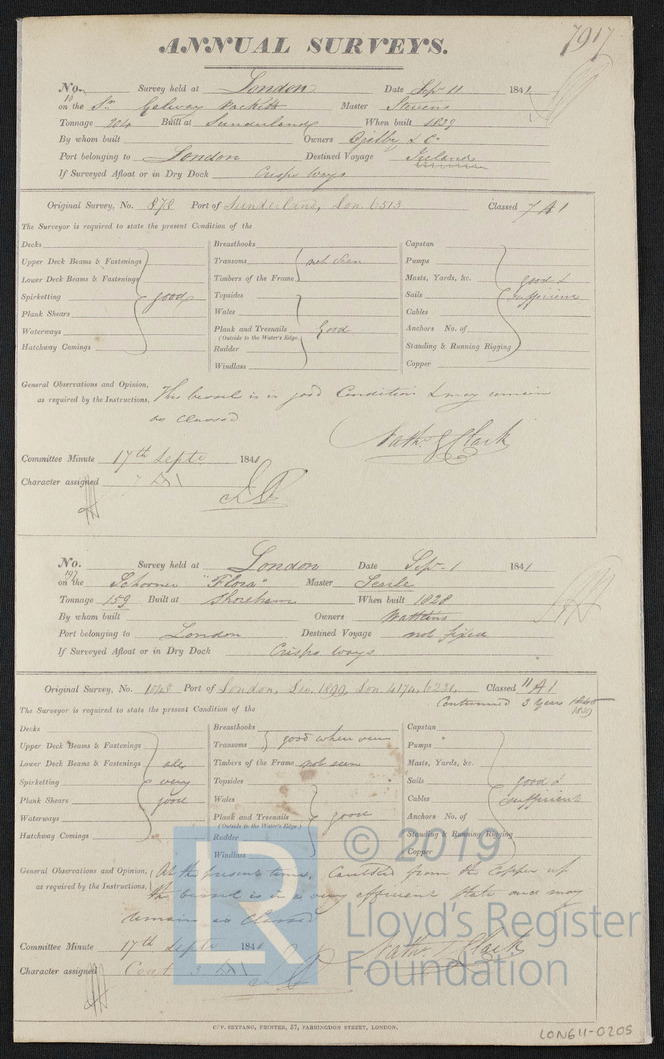 7917
ANNUAL SURVEYS.
No. Survey held at London Date Sept 11 1841
on the Galway Packett Master Stevens
Tonnage 204 Built at Sunderland When built 1839
By whom built Owners & Co
Port belonging to London Destined Voyage Ireland
If Surveyed Afloat or in Dry Dock Crisps Ways
Original Survey, No. 878 Port of Sunderland, Lon. 6513 Classed 7 A1
The Surveyor is required to state the present Condition of the
Decks
Upper Deck Beams & Fastenings
Lower Deck Beams & Fastenings
Spirketting good
Plank Shears
Waterways
Hatchway Comings
Breasthooks
Transoms not seen
Timbers of the Frame
Topsides
Wales
Plank and Treenails good
(Outside to the Water's Edge.
Rudder
Windlass
Capstan
Pumps
Masts, Yards, &c. good &
Sails sufficient
Cables
Anchors No. of
Standing & Running Rigging
Copper
General Observations and Opinion, This vessel is in good Condition & may remain
as required by the Instructions. as classed
Nathl G Clark
Committee Minute 17th Septr 1841
Character assigned 7 A1
No. Survey held at London Date Sept 1 1841
197
on the Schooner "Flora" Master Searle
Tonnage 159 Built at Shoreham When built 1828
By whom built Owners Watkins
Port belonging to London Destined Voyage not fixed
If Surveyed Afloat or in Dry Dock Crisps ways
Original Survey, No. 1048 Port of London, Lon 4174, 6231, Classed 11 A1
Continued 3 Years
The Surveyor is required to state the present Condition of the
Decks
Upper Deck Beams & Fastenings
Lower Deck Beams & Fastenings all
Spirketting very
Plank Shears good
Waterways
Hatchway Comings
Breasthooks
Transoms good when seen
Timbers of the Frame not seen
Topsides
Wales
Plank and Treenails good
(Outside to the Water's Edge.)
Rudder
Windlass
Capstan
Pumps
Masts, Yards, &c.
Sails good &
Cables sufficient
Anchors No. of
Standing & Running Rigging
Copper
General Observations and Opinion, At the present time, Caulked from the Copper up
as required by the Instructions, the vessel is in a very efficient state and may
remain as Classed
Nathl G Clark
Committee Minute 17th Septr 1841
Character assigned Cont 3 A1
C. F. SEYFANG, PRINTER, 57, FARRINGDON STREET, LONDON.
LON611-0205
LR
© 2019
Lloyd's Register
Foundation